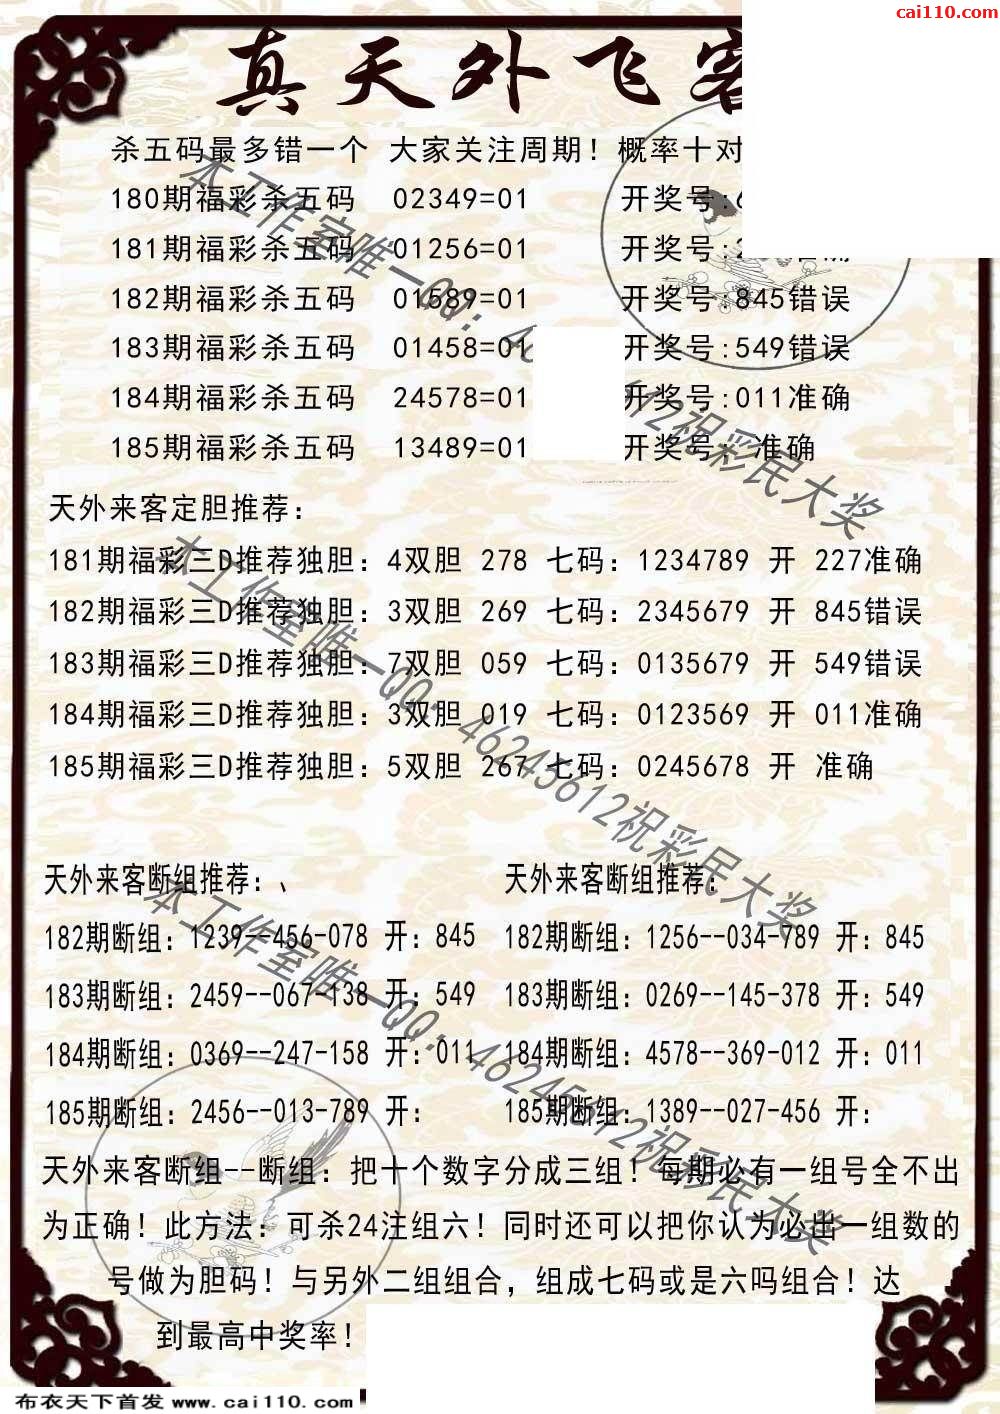 cai110.com
真天外飞客
杀五码最多错一个 大家关注周期！概率十对
180期福彩杀五码 02349=01 开奖号:
181期福彩杀五码 01256=01 开奖号:2
182期福彩杀五码 01589=01 开奖号:845错误
183期福彩杀五码 01458=01 开奖号:549错误
184期福彩杀五码 24578=01 开奖号:011准确
185期福彩杀五码 13489=01 开奖号: 准确
天外来客定胆推荐：
181期福彩三D推荐独胆：4双胆 278 七码：1234789 开 227准确
182期福彩三D推荐独胆：3双胆 269 七码：2345679 开 845错误
183期福彩三D推荐独胆：7双胆 059 七码：0135679 开 549错误
184期福彩三D推荐独胆：3双胆 019 七码：0123569 开 011准确
185期福彩三D推荐独胆：5双胆 267 七码：0245678 开 准确
天外来客断组推荐：、 天外来客断组推荐：
182期断组：1239--456-078 开：845 182期断组：1256--034-789 开：845
183期断组：2459--067-138 开：549 183期断组：0269--145-378 开：549
184期断组：0369--247-158 开：011 184期断组：4578--369-012 开：011
185期断组：2456--013-789 开： 185期断组：1389--027-456 开：
天外来客断组--断组：把十个数字分成三组！每期必有一组号全不出
为正确！此方法：可杀24注组六！同时还可以把你认为必出一组数的
号做为胆码！与另外二组组合，组成七码或是六吗组合！达
到最高中奖率！
本工作室唯一QQ：46245612祝彩民大奖
本工作室唯一QQ：46245612祝彩民大奖
布衣天下首发 www.cai110.com